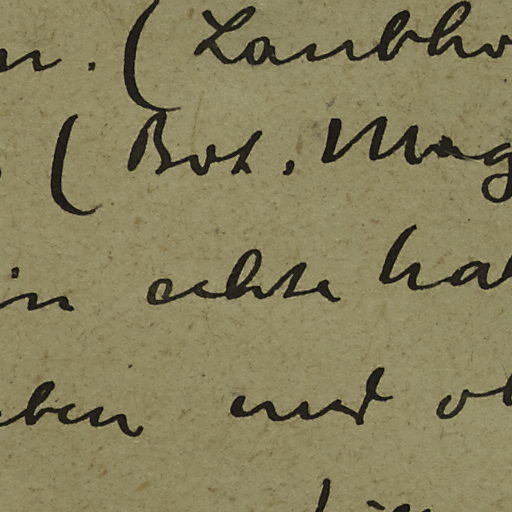 n. (Laubho
(Bot. Mag
in echte hab
ben und ob